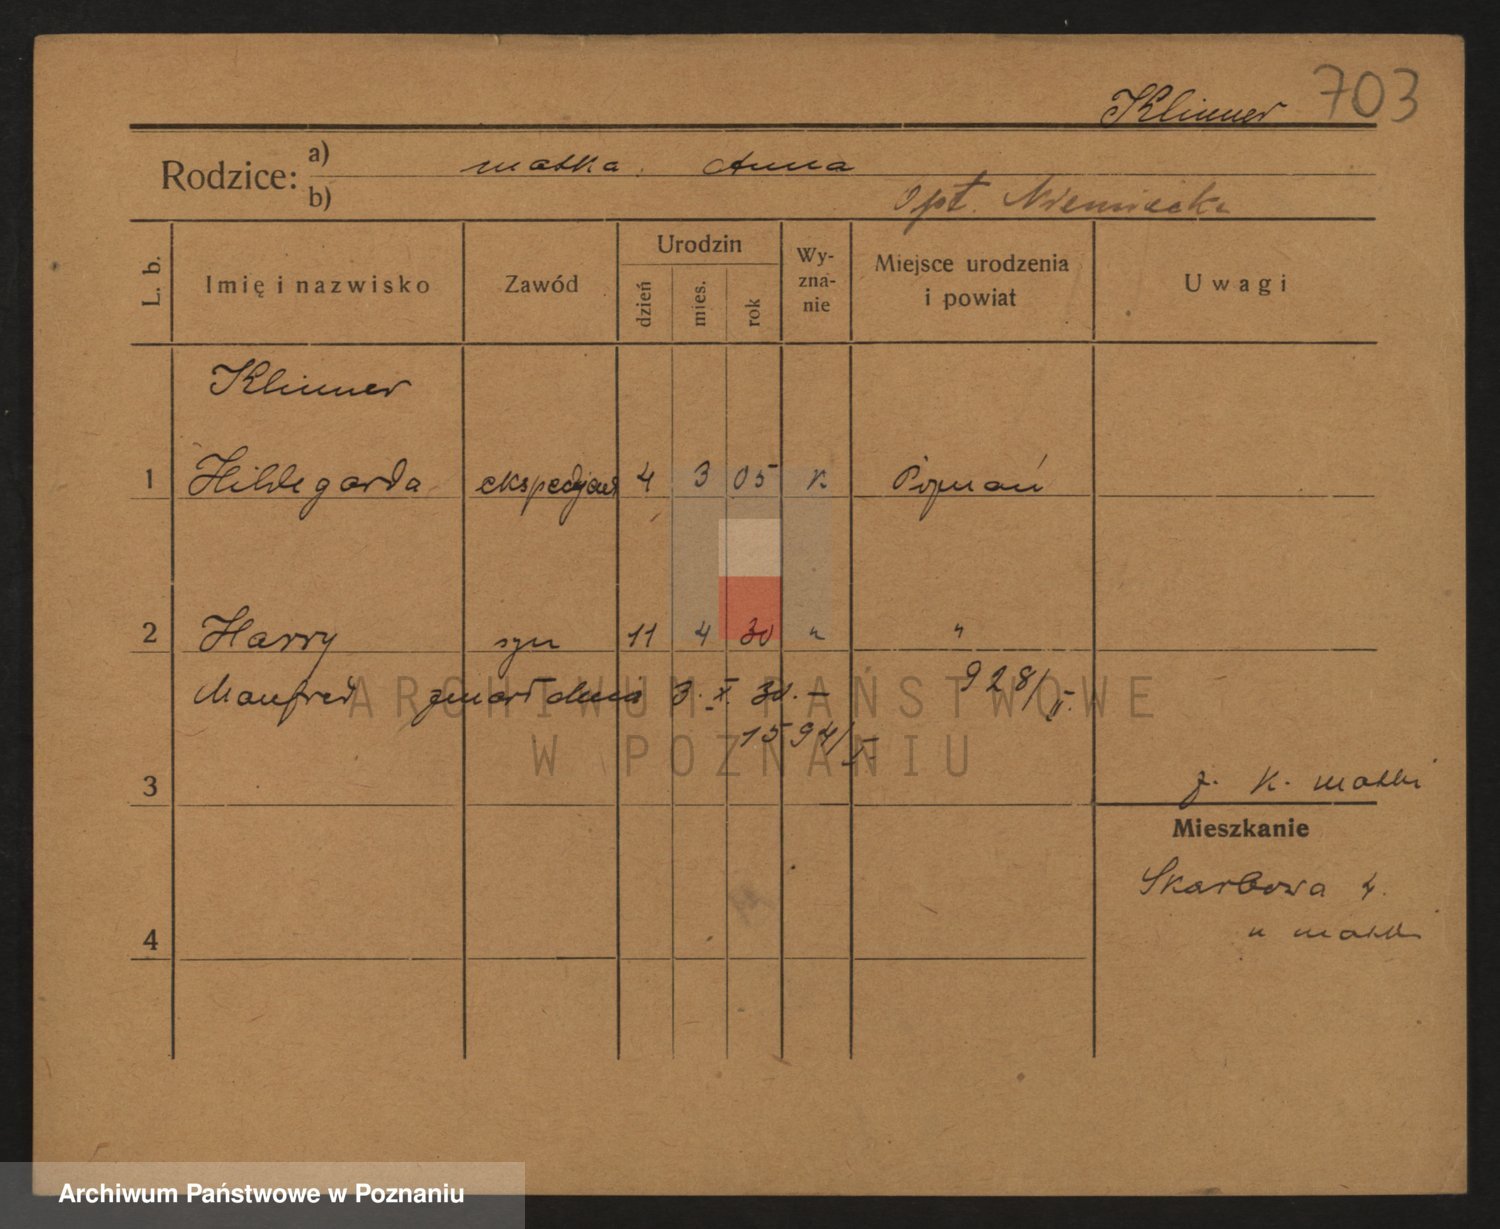 Klinner 703
Rodzice: a) matka. Anna
b) Opt. Niemiecka
L. b.
Imię i nazwisko
Zawód
Urodzin
dzień
mies.
rok
Wy-
zna-
nie
Miejsce urodzenia
i powiat
Uwagi
Klinner
1 Hildegarda ekspedjent 4 3 05 K Poznań
2 Harry syn 11 4 30 " "
Manfred zmarł dnia 3. X. 30. — 928/II.
1594/
3
z. K. matki
Mieszkanie
Skarbowa 4.
u matki
4
ARCHIWUM PAŃSTWOWE
W POZNANIU
Archiwum Państwowe w Poznaniu